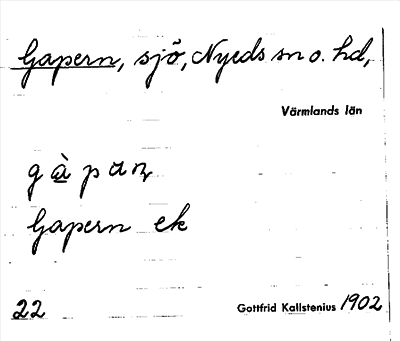 Gapern, sjö, Nyeds sn o. hd,
Värmlands län
Gapern ek
22
Gottfrid Kallstenius 1902